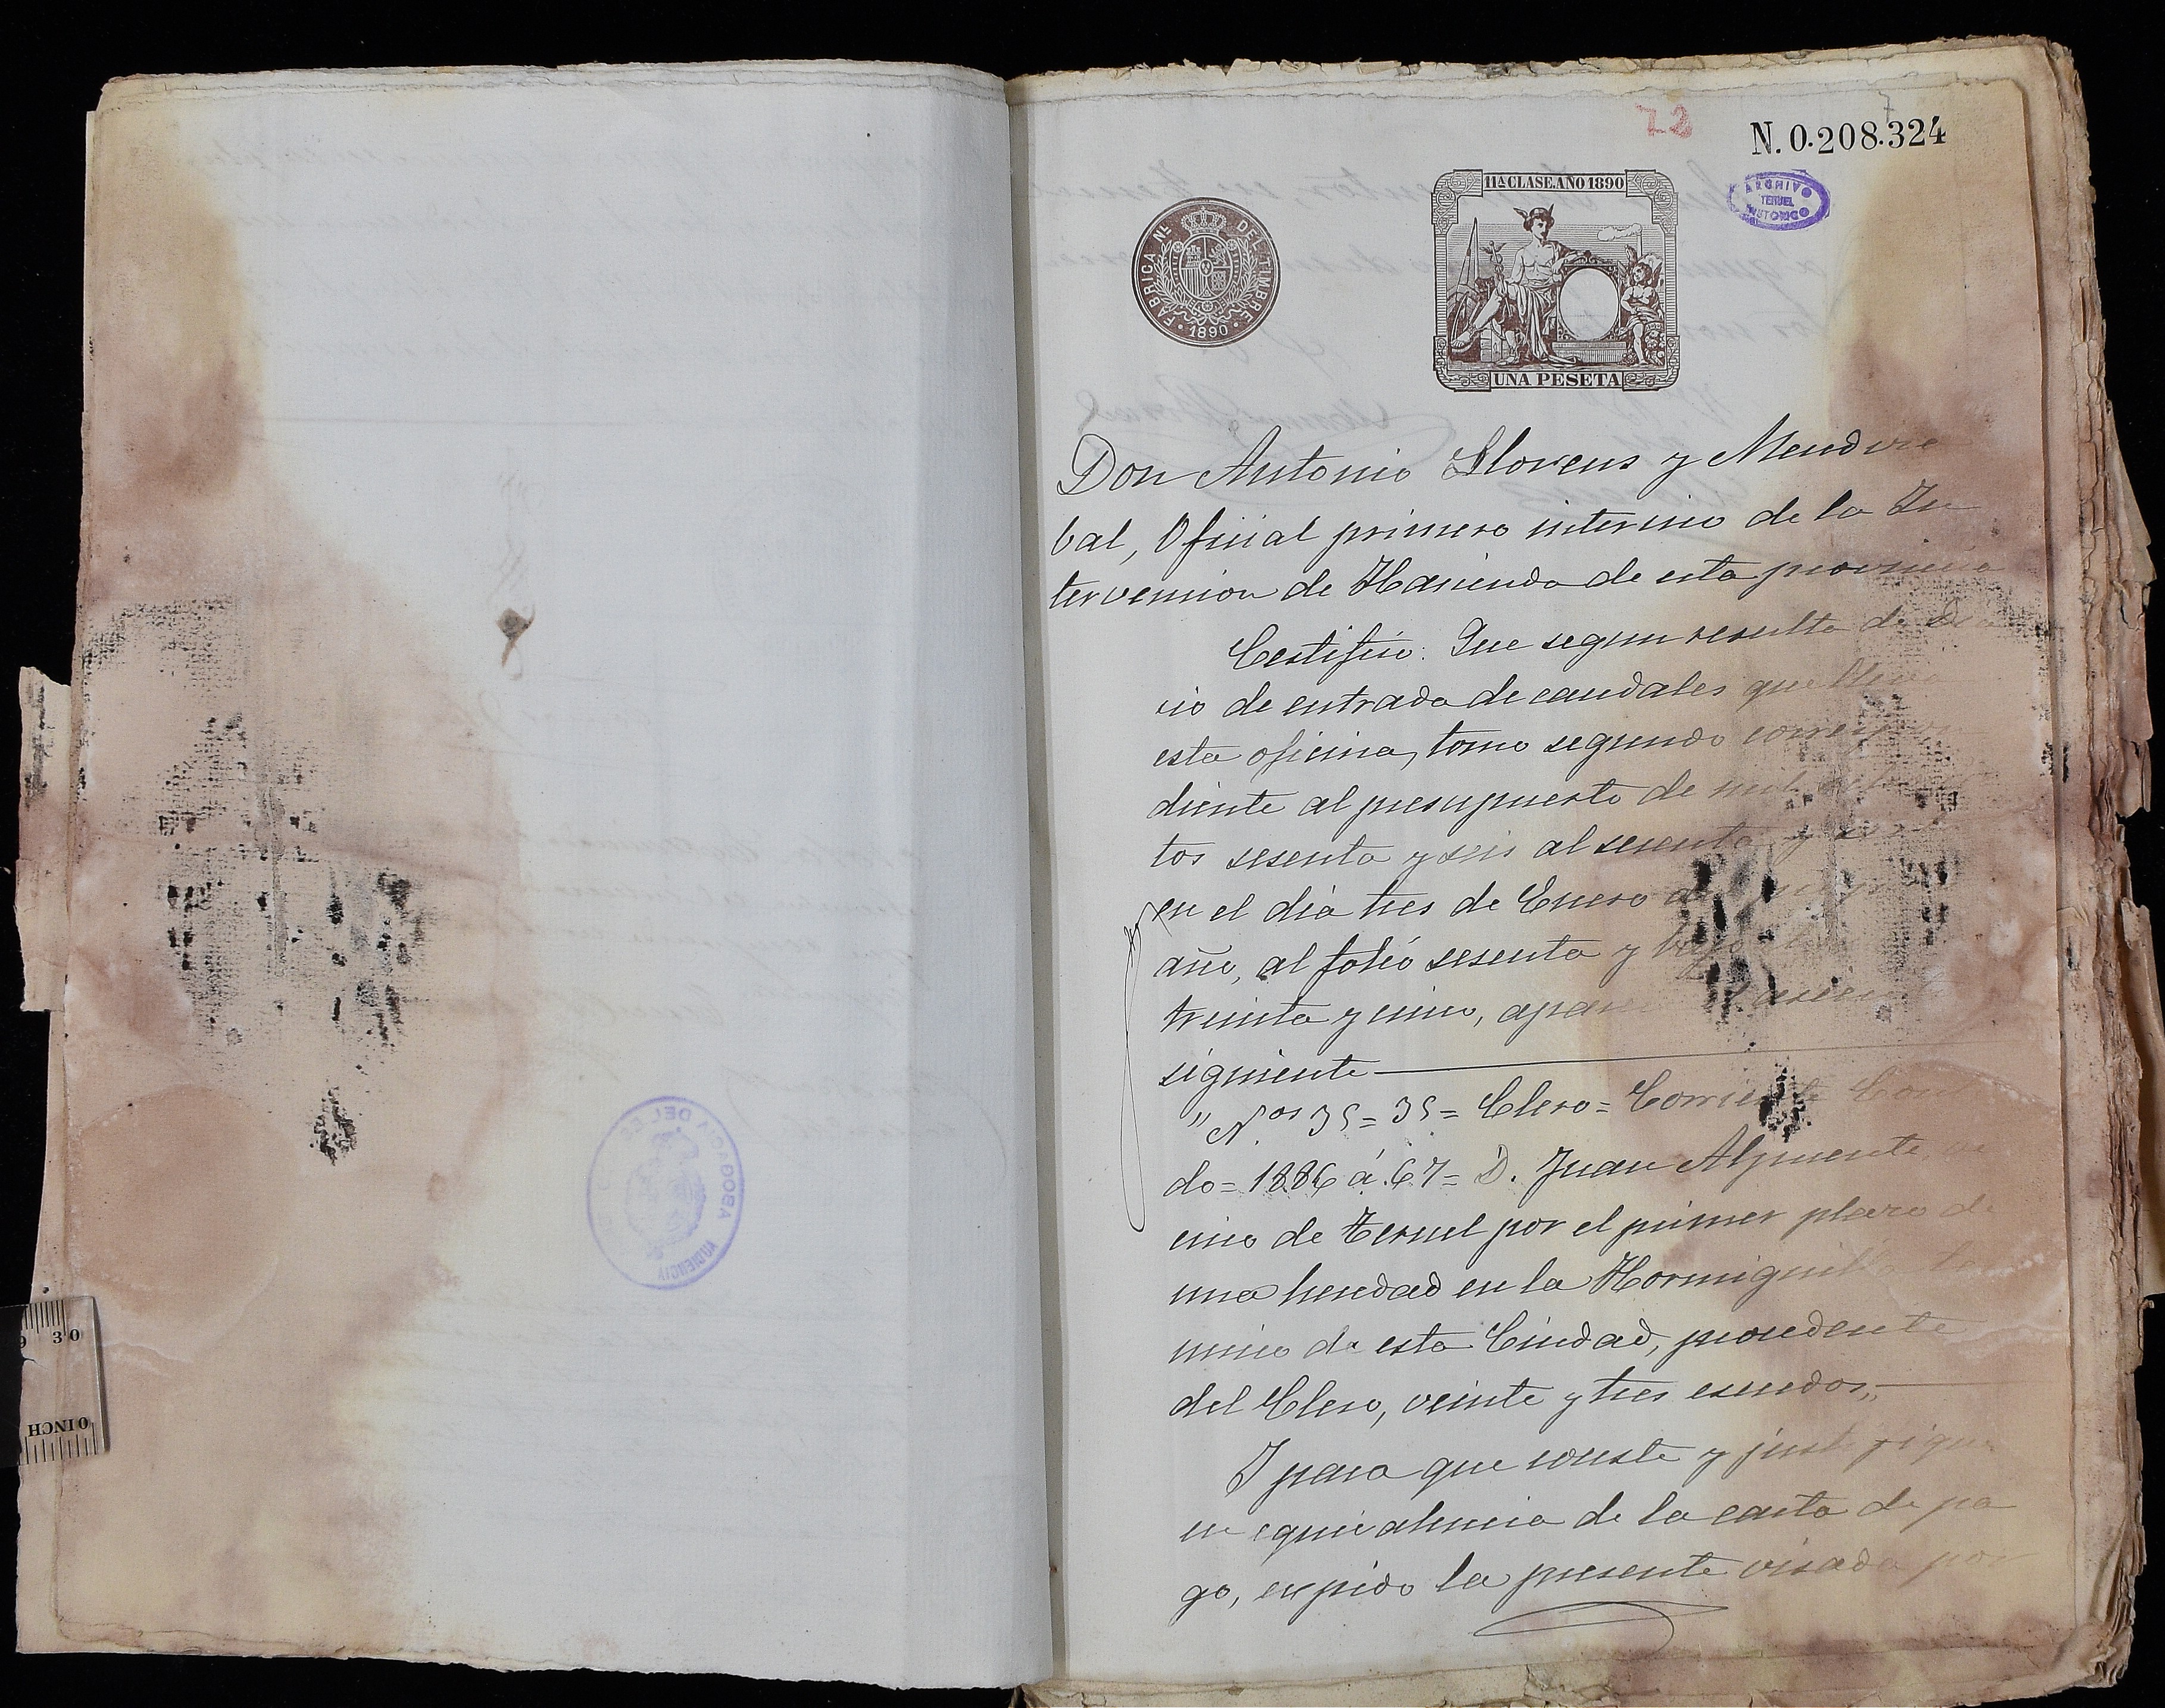 72
7
N. 0.208.324
11ª CLASE. AÑO 1890
UNA PESETA
FABRICA NL. DEL TIMBRE
1890
ARCHIVO
TERUEL
HISTORICO
Don Antonio Llorens y Mendize
bal, Oficial primero interino de la In
tervencion de Hacienda de esta provincia
Certifico: Que segun resulta de
rio de entrada de caudales que lleva
esta oficina, tomo segundo correspon
diente al presupuesto de mil
tos sesenta y seis al sesenta y
en el dia tres de Enero
año, al folio sesenta y bajo
treinta y cinco, aparece asiento
siguiente
"Nos 35 = 35 = Clero = Corriente
do = 1886 á 67 = D. Juan Alpuente, ve
cino de Teruel por el primer plazo de
una heredad en la Hormiguilla
mino de esta Ciudad, procedente
del Clero, veinte y tres escudos,,
Y para que conste y justifique
en equivalencia de la carta de pa
go, expido la presente visada por
AUDIENCIA
30
0 INCH